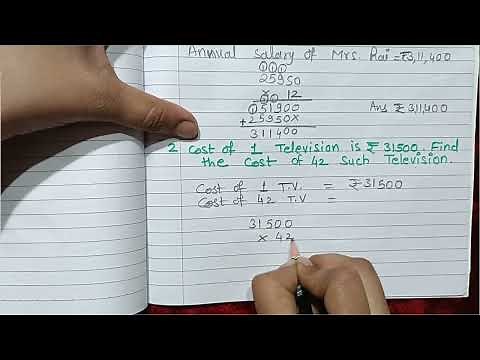 Annual Salary of Mrs. Rai = ₹3,11,400
1 1 1
25950
x 12
1 1
051900
+25950x
311400
Ans ₹ 311,400
2 Cost of 1 Television is ₹ 31500. Find
the Cost of 42 Such Television.
Cost of 1 T.V. = ₹31500
Cost of 42 T.V =
31500
x 42